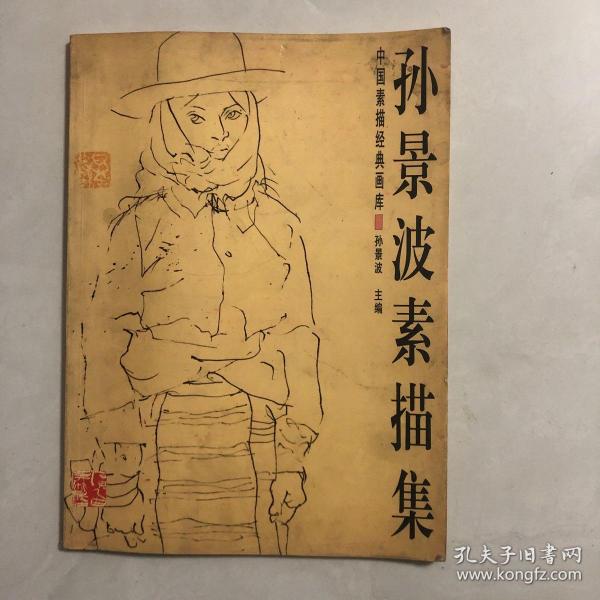 孙景波素描集
中国素描经典画库
孙景波 主编
孔夫子旧书网
www.kongfz.com